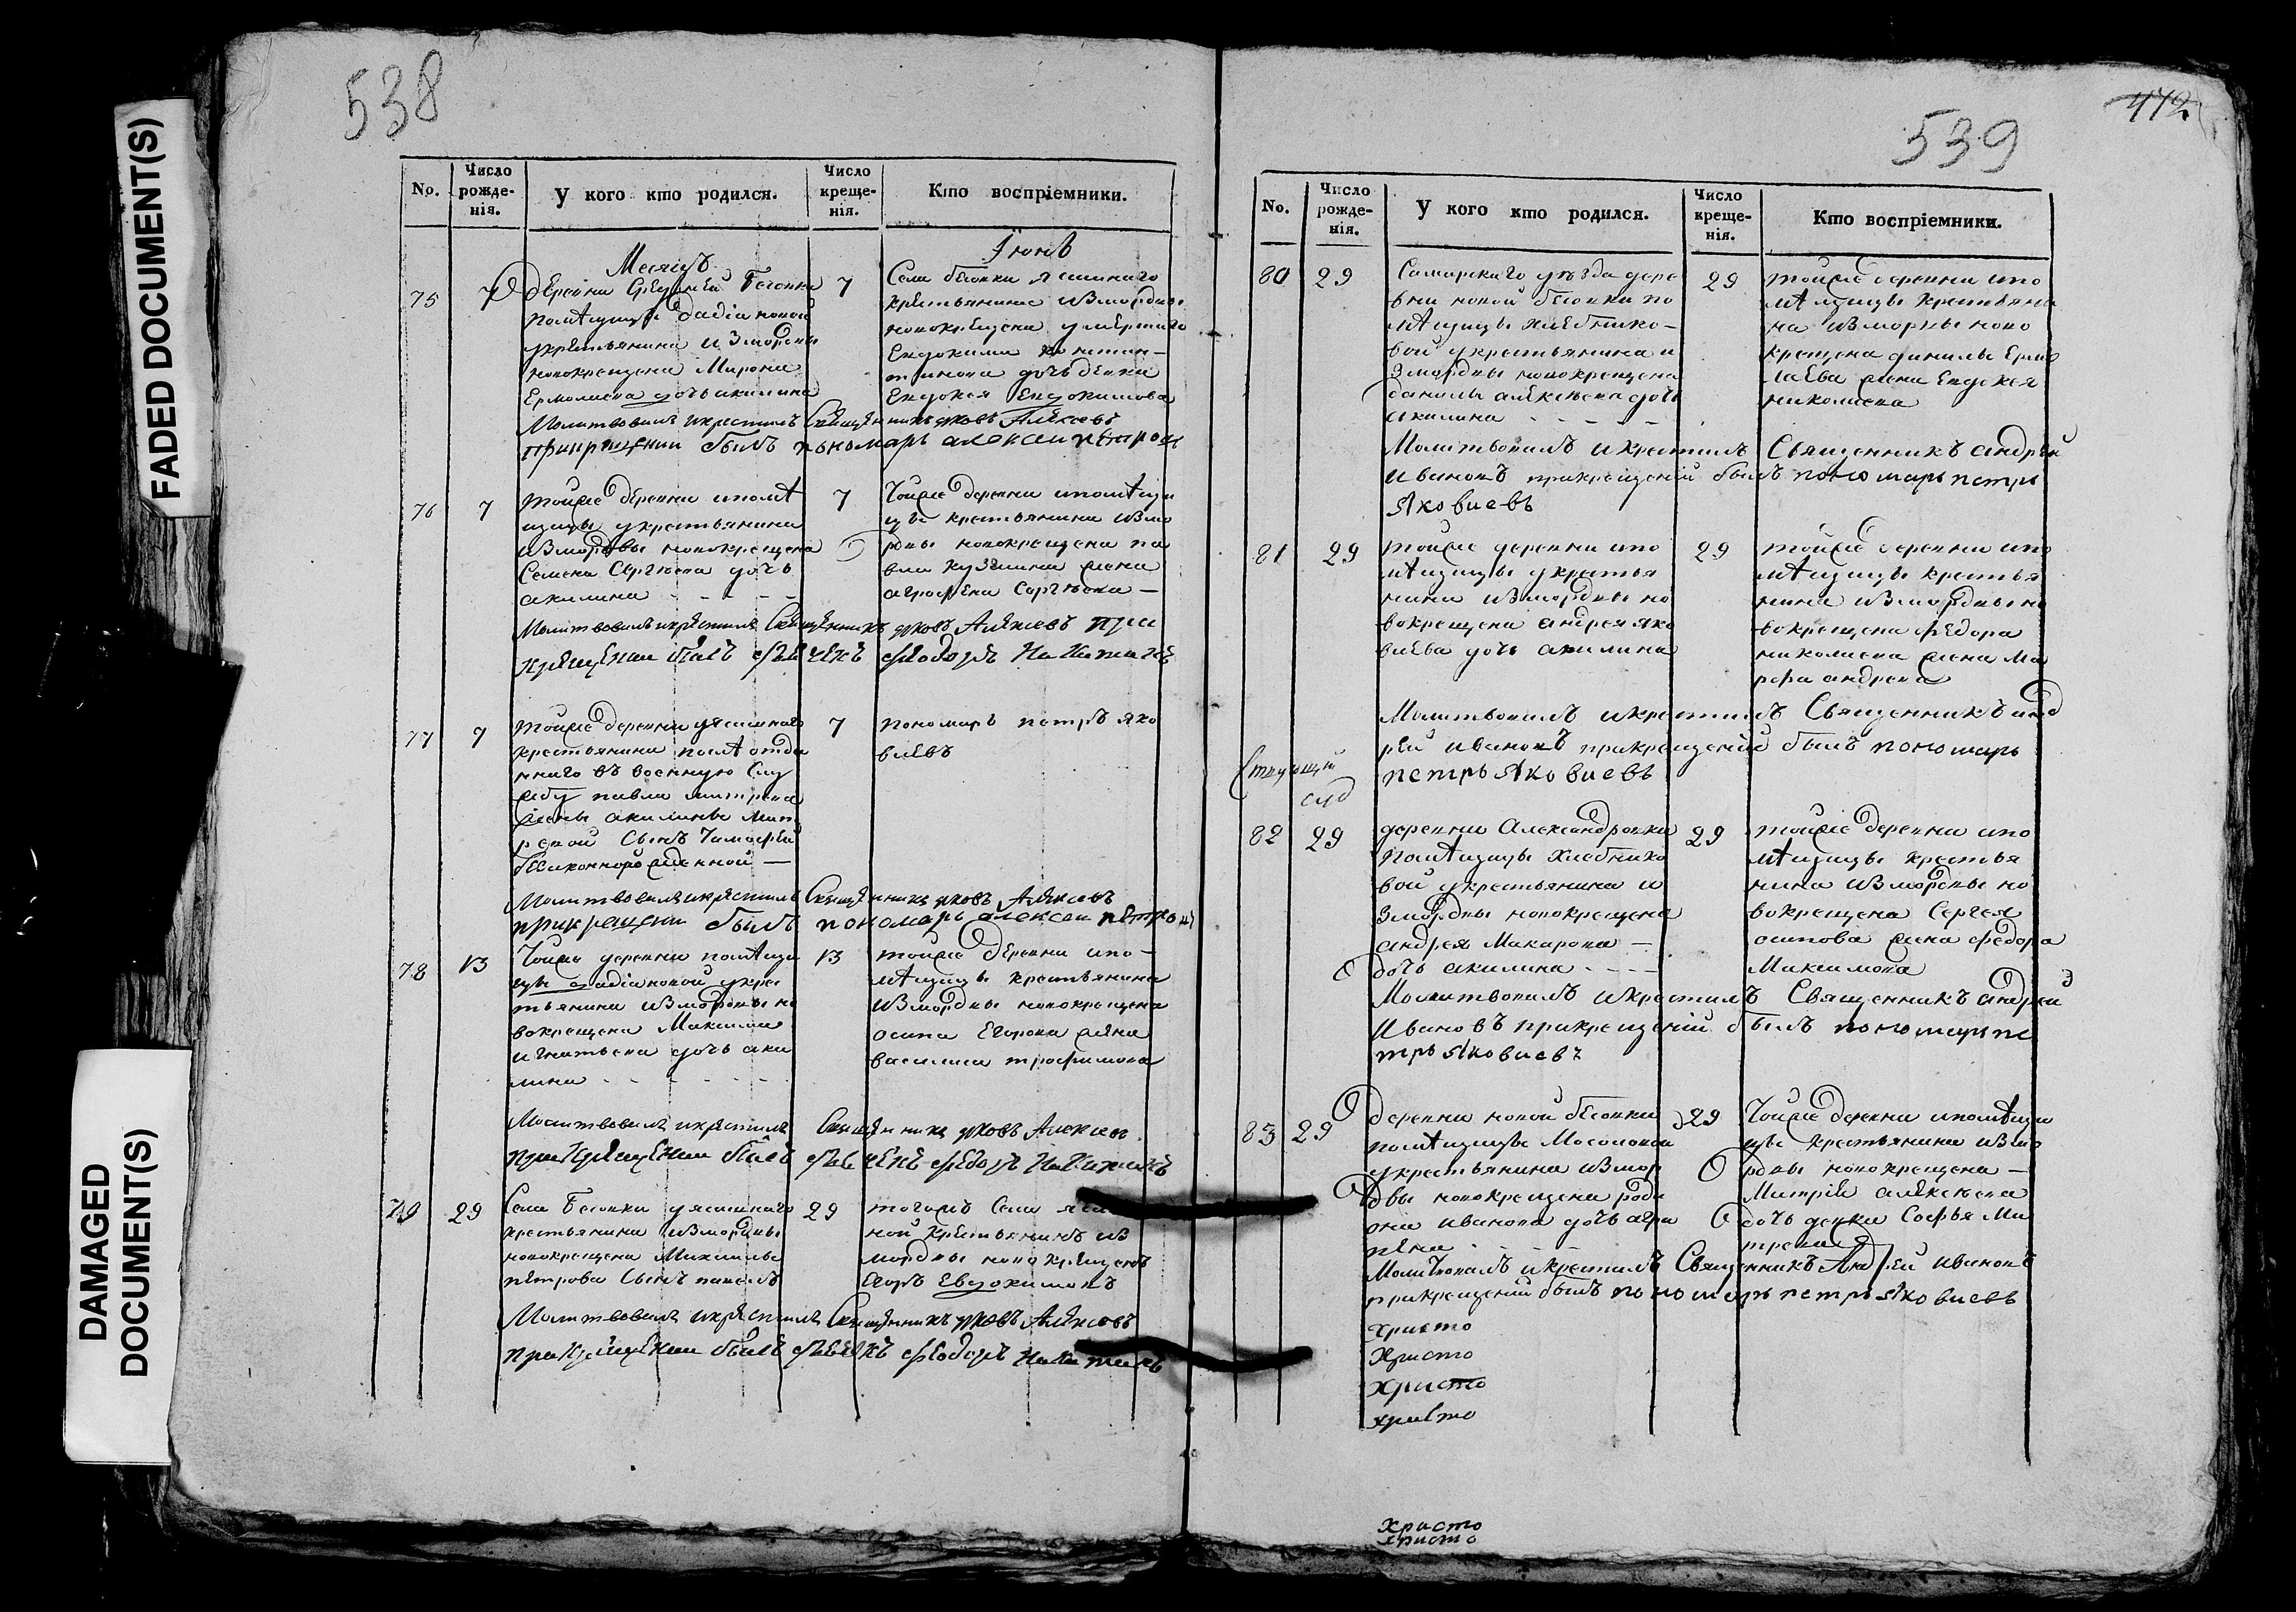 FADED DOCUMENT(S)
DAMAGED
DOCUMENT(S)
538
No.
Число
рожде-
нія.
У кого кто родился.
Число
креще-
нія.
Кто воспріемники.
Месяцъ
Іюнь
75
7
деревни Средней Бесовки
помѣщицы
укрестьянина измордвы
новокрещена Мирона
Ермолаева дочь акилина
7
Села бесовки ясашнаго
крестьянина измордвы
новокрещена умершаго
Евдокима констан-
тинова дочь девка
Евдокея Евдокимова
Молитвовалъ икрестилъ Священникъ яковъ Алексеевъ
прикрещении былъ пономарь алексеи петровъ
76
7
тойже деревни ипомѣ
щицы укрестьянина
измордвы новокрещена
Семена Сергѣева дочь
акилина - - - -
7
Тойже деревни ипомѣщи
цы крестьянина измо
рдвы новокрещена па
вла кузмина жена
аграфена Сергѣева —
Молитвовалъ икрестилъ Священникъ яковъ Алексеевъ при
крещении былъ дьячекъ феодоръ Никитинъ
77
7
тойже деревни уясашнаго
крестьянина помѣ отда
ннаго въ военную Слу
жбу павла митрева
жены акилины Мит
ревой Сынъ Тимофей
беззаконнорожденной —
7
пономарь петръ яко
влевъ
Молитвовалъ икрестилъ Священникъ яковъ Алексеевъ
прикрещении былъ пономарь алексеи петровъ
78
13
Тойже деревни помѣщи
цы укрес
тьянина измордвы но
вокрещена Максима
игнатьева дочь аки
лина - - - - - -
13
тойже деревни ипо-
мѣщицы крестьянина
измордвы новокрещена
осипа Егорова жена
василиса трофимова
Молитвовалъ икрестилъ Священникъ яковъ Алексеевъ
при крещении былъ дьячекъ феодоръ Никитинъ
79
29
Села Бесовки уясашнаго
крестьянина измордвы
новокрещена Михаилы
петрова Сынъ павелъ
29
тогожъ Села ясаш
ной крестьянинъ из
мордвы новокрещенъ
Егоръ Евдокимовъ
Молитвовалъ икрестилъ Священникъ яковъ Алексеевъ
при крещении былъ дьячекъ феодоръ Никитинъ
472
539
No.
Число
рожде-
нія.
У кого кто родился.
Число
креще-
нія.
Кто воспріемники.
80
29
Самарскаго уѣзда дере
вни новой бесовки по
мѣщицы Хлебнико-
вой укрестьянина и
змордвы новокрещена
данилы алексѣева дочь
акилина - - - -
29
тойже деревни ипо
мѣщицы крестьяни
на измордвы ново
крещена данилы Ермо
лаева жена Евдокея
николаева
Молитвовалъ икрестилъ Священникъ андрей
ивановъ прикрещении былъ пономарь петръ
Яковлевъ
81
29
тойже деревни ипо
мѣщицы укрестья
нина измордвы но
вокрещена андрея яко
влева дочь акилина
29
тойже деревни ипо
мѣщицы крестья
нина измордвы но
вокрещена федора
николаева жена Ма
рфа андреева
Молитвовалъ икрестилъ Священникъ анд
рей ивановъ прикрещении былъ пономарь
петръ Яковлевъ
82
29
деревни Александровки
помѣщицы хлебнико
вой укрестьянина и
змордвы новокрещена
андрея Макарова —
дочь акилина - - - -
29
тойже деревни ипо
мѣщицы крестья
нина измордвы но
вокрещена Сергея
осипова жена федора
Максимова
Молитвовалъ икрестилъ Священникъ андрей
Ивановъ прикрещении былъ пономарь пе
тръ Яковлевъ
83
29
деревни новой бесовки
помѣщицы Мосоловой
укрестьянина измор
двы новокрещена роди
она иванова дочь агра
пена - - -
29
Тойже деревни ипомѣщи
цы крестьянина измо
рдвы новокрещена —
Митрия алексѣева
дочь девка Софья Ми
трева
Молитвовалъ икрестилъ Священникъ Андрей ивановъ
прикрещении былъ пономарь петръ Яковлевъ
христо
Христо
христо
христо
христо
христо